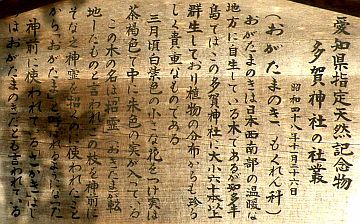 愛知県指定天然記念物
多賀神社の社叢
昭和四十八年十一月二十六日
(おがたまのき もくれん科)
おがたまのきは日本西南部の温暖な
地方に自生している木であるが知多半
島ではこの多賀神社に大小六十本以上
群生しており植物の分布からも珍ら
しく貴重なものである
三月頃白黄色の小さな花をつけ実は
茶褐色で中に朱色の実が入っている
この木の名は招霊 おきたま が転
化したものと言われこの枝を神前に
そなえ神霊を招くのに使われたこと
から おがたまと呼ばれるようになった
神前に使われているさかきはもと
はおがたまのきだったとも言われている